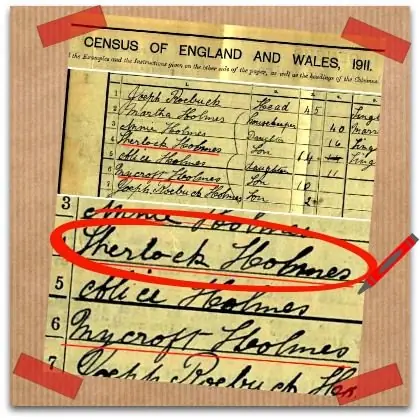 CENSUS OF ENGLAND AND WALES, 1911.
the Examples and the Instructions given on the other side of the paper, as well as the headings of the Columns
1 Joseph Roebuck Head 45
2 Martha Holmes Housekeeper 40
3 Annie Holmes Daughter 16
4 Sherlock Holmes Son 14
5 Alice Holmes Daughter 11
6 Mycroft Holmes Son 10
7 Joseph Roebuck Holmes Son 2
3 Annie Holmes
Sherlock Holmes
5 Alice Holmes
6 Mycroft Holmes
7 Joseph Roebuck